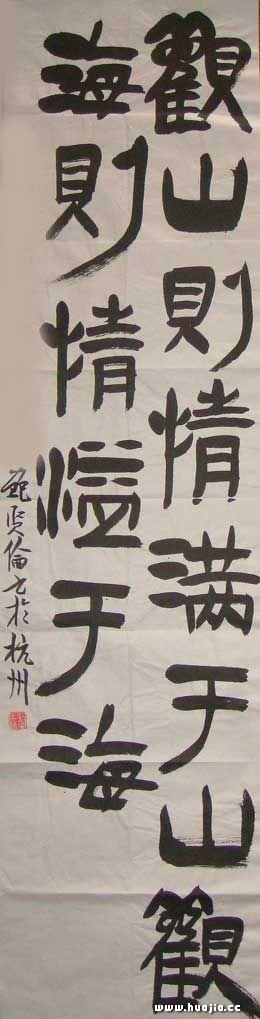 觀山則情满于山觀
海則情溢于海
鲍贤倫书於杭州
www.huajia.cc